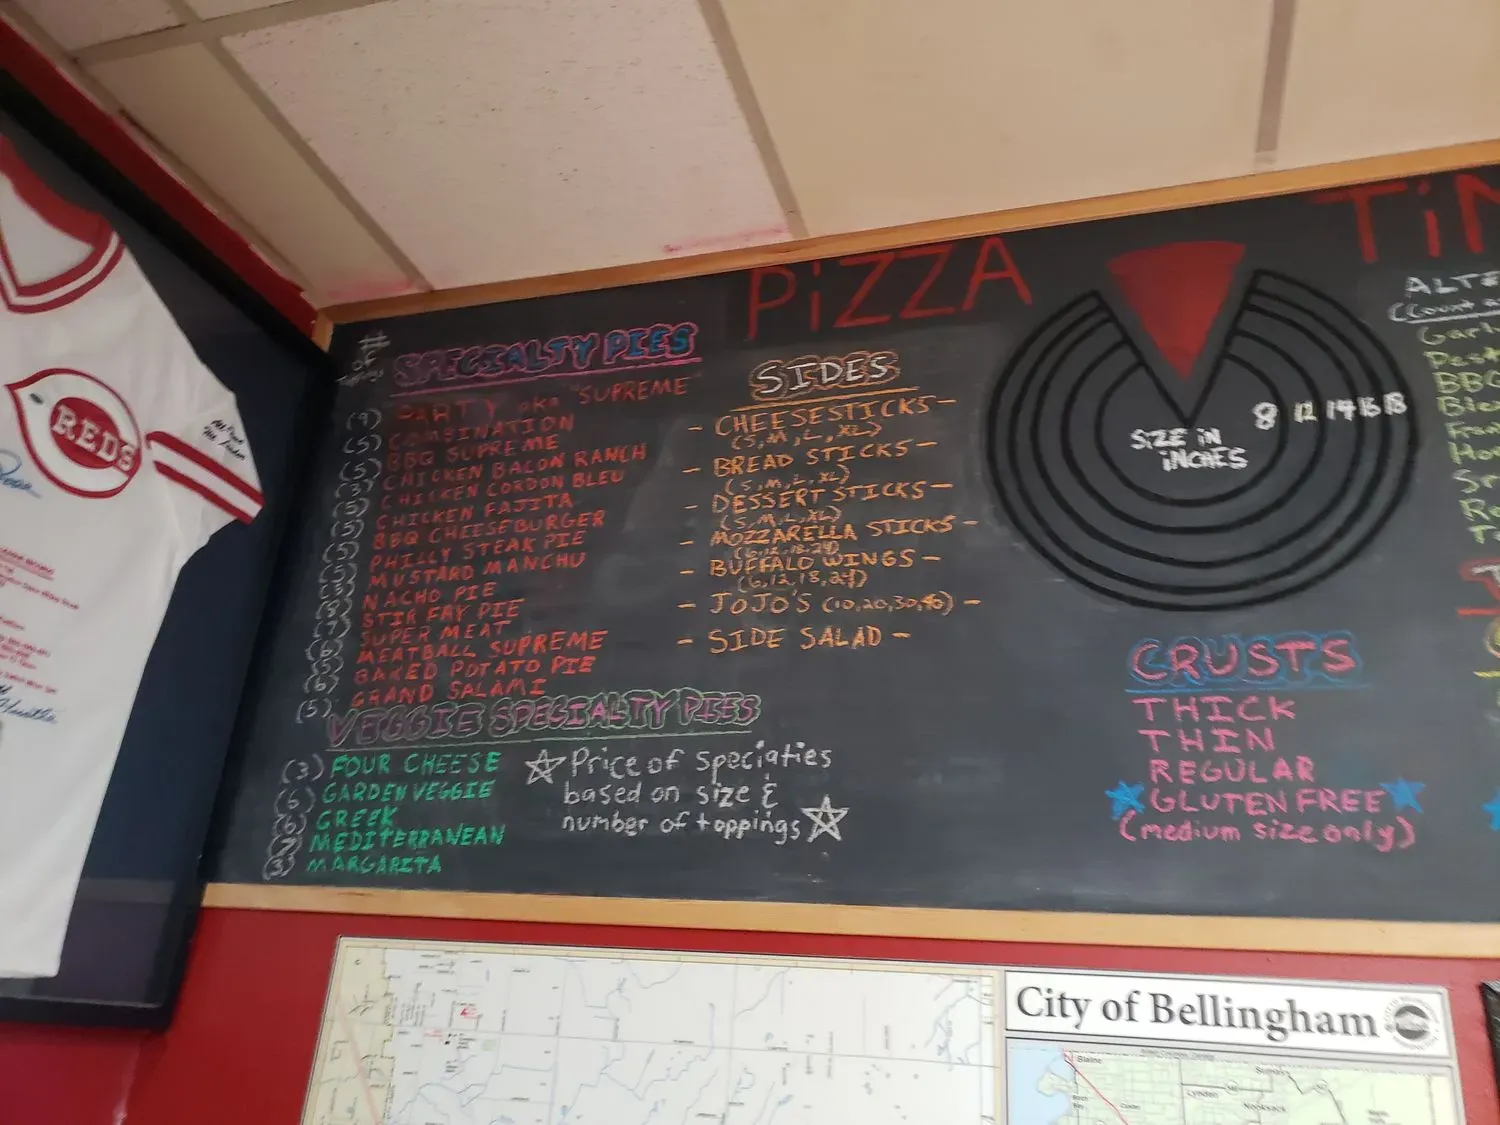 PiZZA
# of Toppings
SPECIALTY PIES
(9) PARTY, aka "SUPREME"
(5) COMBINATION
(5) BBQ SUPREME
(3) CHICKEN BACON RANCH
CHICKEN CORDON BLEU
(5) CHICKEN FAJITA
(5) BBQ CHEESEBURGER
(5) PHILLY STEAK PIE
(5) MUSTARD MANCHU
NACHO PIE
(8) STIR FRY PIE
SUPER MEAT
(6) MEATBALL SUPREME
(5) BAKED POTATO PIE
(6) GRAND SALAMI
(5)
VEGGIE SPECIALTY PIES
(3) FOUR CHEESE
(6) GARDEN VEGGIE
(6) GREEK
(7) MEDITERRANEAN
(3) MARGARITA
☆ Price of specialties
based on size &
number of toppings ☆
SIDES
- CHEESESTICKS -
(S, M, L, XL)
- BREAD STICKS -
(S, M, L, XL)
- DESSERT STICKS -
(S, M, L, XL)
- MOZZARELLA STICKS -
(6, 12, 18, 24)
- BUFFALO WINGS -
(6, 12, 18, 24)
- JOJO'S (10, 20, 30, 40) -
- SIDE SALAD -
SIZE iN
iNCHES
8 12 14 16 18
CRUSTS
THICK
THIN
REGULAR
GLUTEN FREE
(medium size only)
BBQ
REDS
City of Bellingham
Blaine
Lynden
Nooksack
Sumas